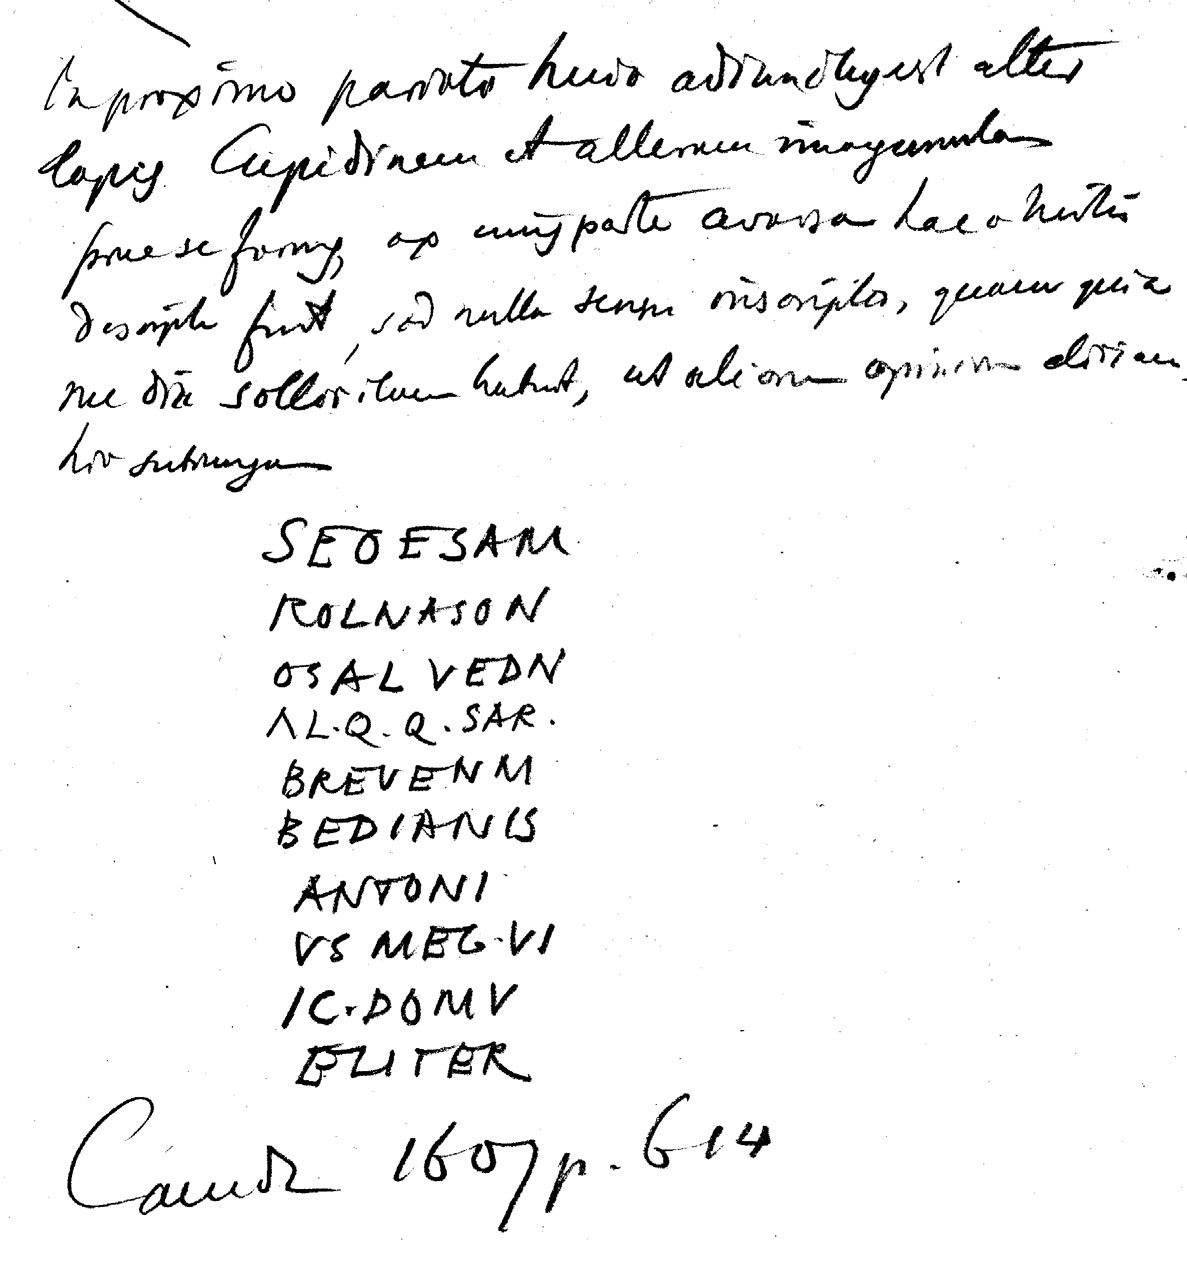 In proximo pariete huic adiunctus est alter
lapis Cupidinem et alteram imagunculam
prae se ferens, ex cuius parte aversa haec a nostris
descripta sunt, sed nullo sensu inscripta, quam quia
me diu sollicitum habuit, ut aliorum opinionem eliciam
hic subiungam
SEOESAM
ROLNASON
OSAL VEDN
ΛL.Q.Q.SAR.
BREVENM
BEDIANIS
ANTONI
VS MEG.VI
IC.DOMV
ELITER
Camd 1607 p. 614